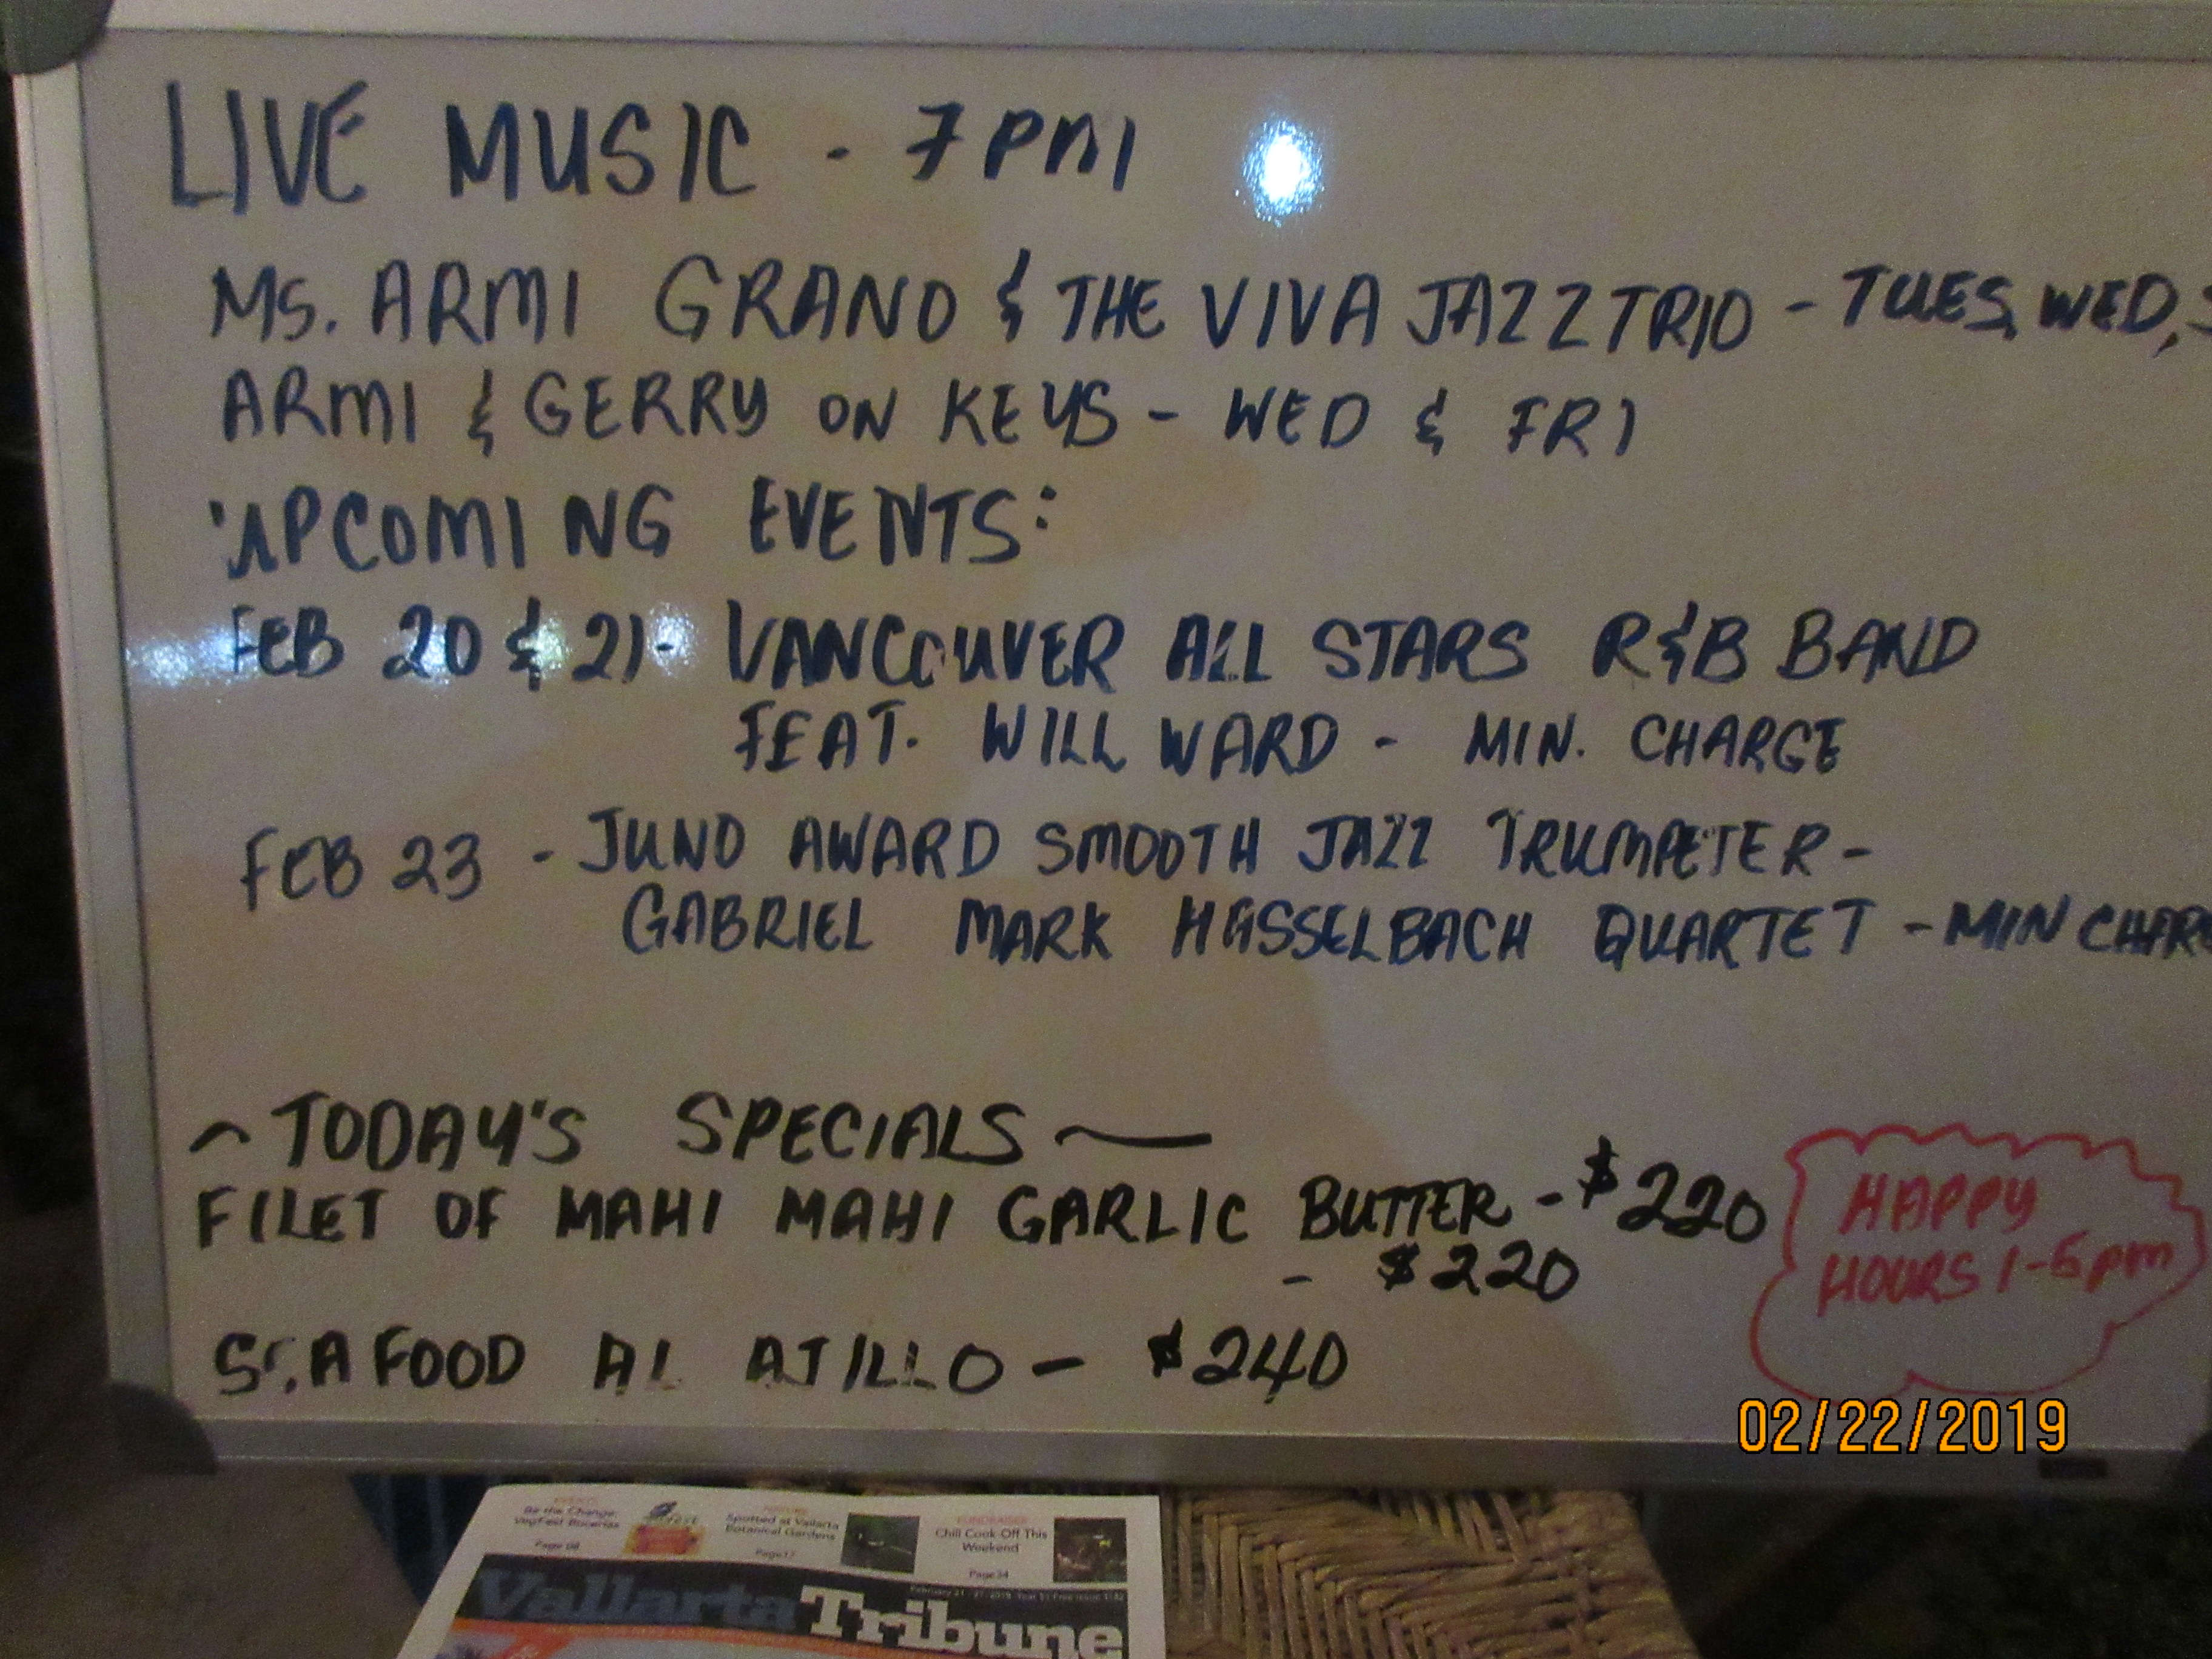 LIVE MUSIC - 7PM
MS. ARMI GRAND & THE VIVA JAZZ TRIO - TUES, WED, S
ARMI & GERRY ON KEYS - WED & FRI
UPCOMING EVENTS:
FEB 20 & 21 - VANCOUVER ALL STARS R&B BAND
FEAT. WILL WARD - MIN. CHARGE
FEB 23 - JUNO AWARD SMOOTH JAZZ TRUMPETER -
GABRIEL MARK HASSELBACH QUARTET - MIN CHARG
~ TODAY'S SPECIALS ~
FILET OF MAHI MAHI GARLIC BUTTER - $220
- $220
SEAFOOD AL AJILLO - $240
HAPPY
HOURS 1-5pm
02/22/2019
Be the Change:
Page 08
Spotted at Vallarta
Botanical Gardens
Page 17
FUNDRAISER
Chili Cook-Off This
Weekend
Page 34
Vallarta Tribune